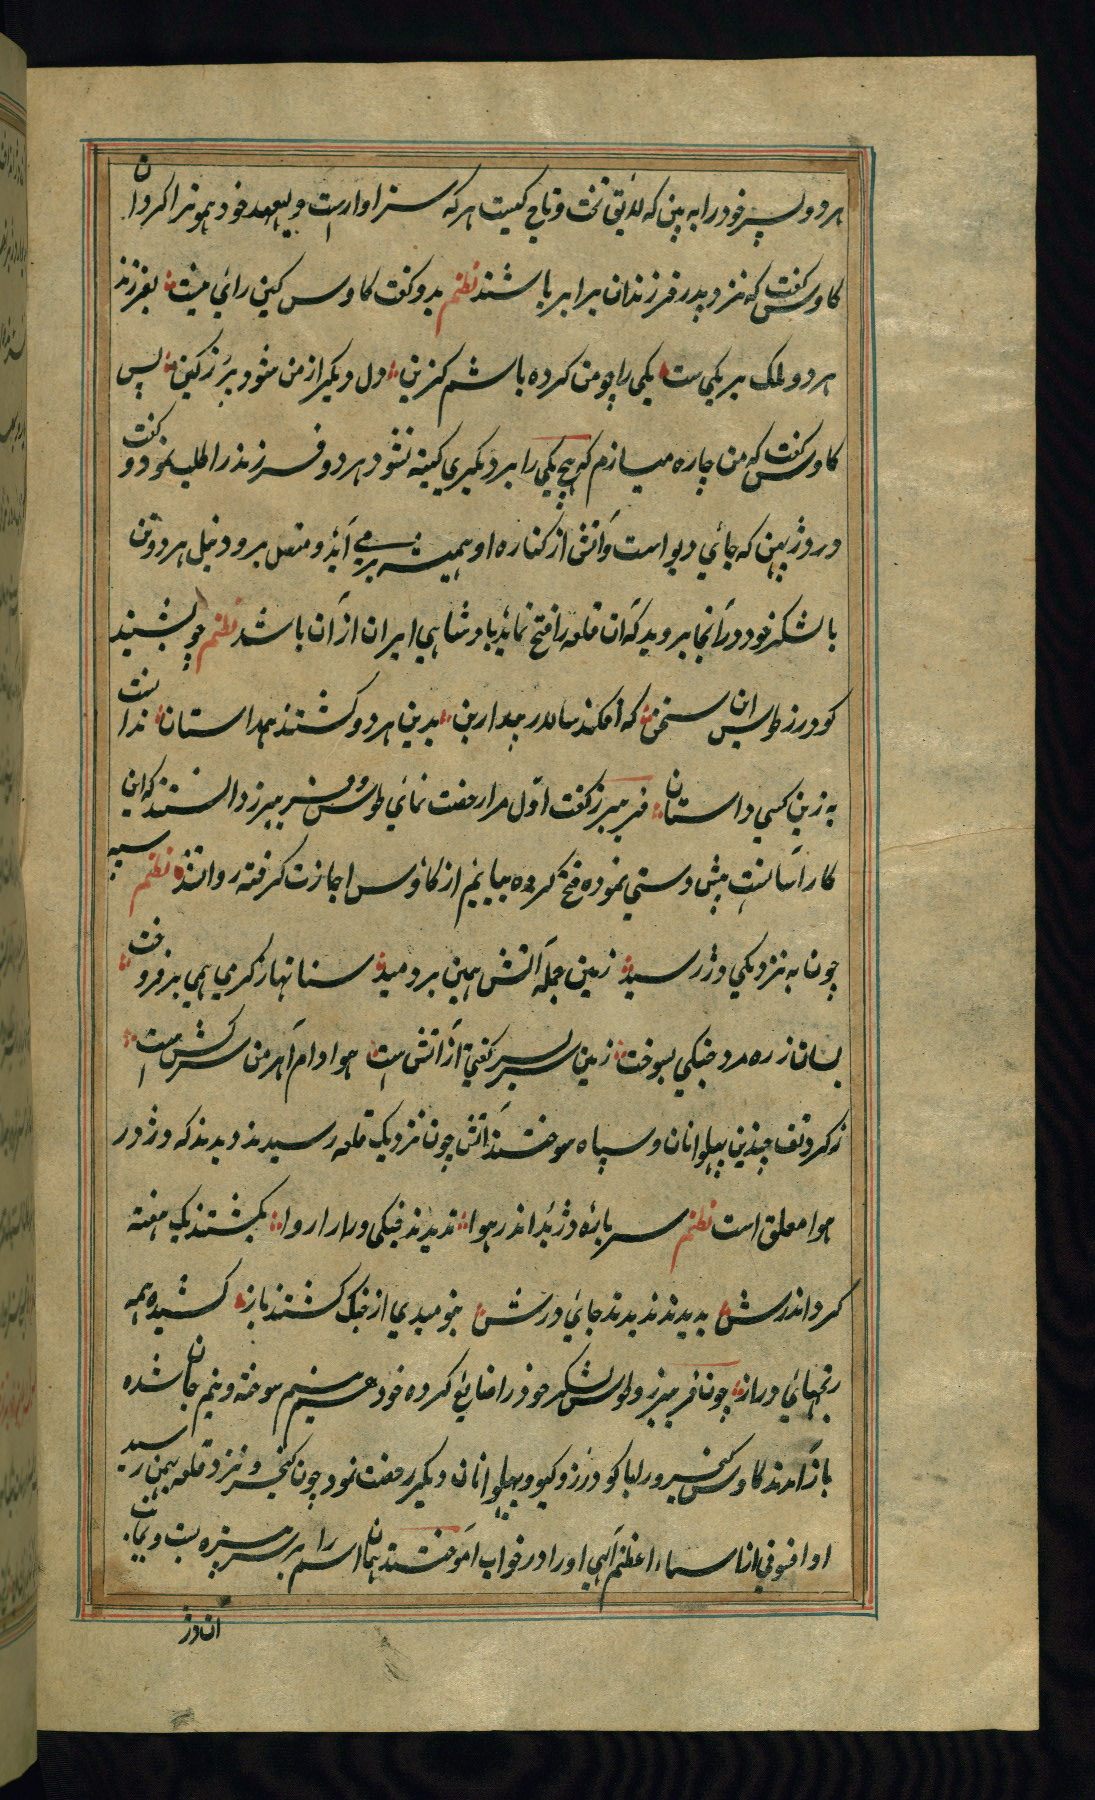 هر دو پسر خود را به بین که لایق تخت و تاج کیست هر که سزاوار است ولیعهد خود همونرا کردان
کاوس کفت که نزد پدر فرزندان برابر باشند نظم بدو کفت کاوس کین رای نیست بفرزند
هر دو ملک بر یکی ست یکی را چو من کرده باشم کزین دل دیکر از من شود پر ز کین پس
کاوس کفت که من چاره میسازم که هیچ یکی را بر دیکری کینه نشود هر دو فرزند را طلب نمود و کفت
در دژ بهمن که جای دیو است و آتش از کناره او همیشه بر می آید و متصل برود نیل هر دو تن
با لشکر خود در آنجا بروید که آن قلعه را فتح نماید پادشاهی ایران از آن باشد نظم چو بشنید
کودرز و طوس این سخن که افکند سالار بیدار بن بدین هر دو کشتند همداستان ندانست
به زین کسی داستان فریبرز کفت اول مرا رخصت نمای طوس و فریبرز دانستند که این
کار آسانست پیش دستی نموده فتح کرده بیایم از کاوس اجازت کرفته روانشد نظم سپه
چون به نزدیکی دژ رسید زمین جمله آتش همین بردمید سنانها ز کرمی همی برفروخت
بسان زره مرد جنکی بسوخت زمین سر بسر کفتی از آتش است هوا دام آهرمن سرکش است
ز کرد تف چندین پهلوانان و سپاه سوختند آتش چون نزدیک قلعه رسیدند دیدند که دژ در
هوا معلق است نظم سر باره دژ بد اندر هوا ندیدند جنکی ورا روا بکشتند یک هفته
کرد اندرش بدیدند ندیدند جای درش بنومیدی از جنک کشتند باز کشیده همه
رنجهای دراز چون فریبرز و طوس لشکر خود را ضایع کرده خود هم نیم سوخته و نیم جان شده
باز آمدند کاوس کیخسرو را با کودرز و کیو و پهلوانان دیکر رخصت نمود چون کیخسرو نزد قلعه بهمن رسید
او افسونی از اسماء اعظم آلهی او را در خواب آموختند همان اسم را بر سر نیزه بست و
ان دژ